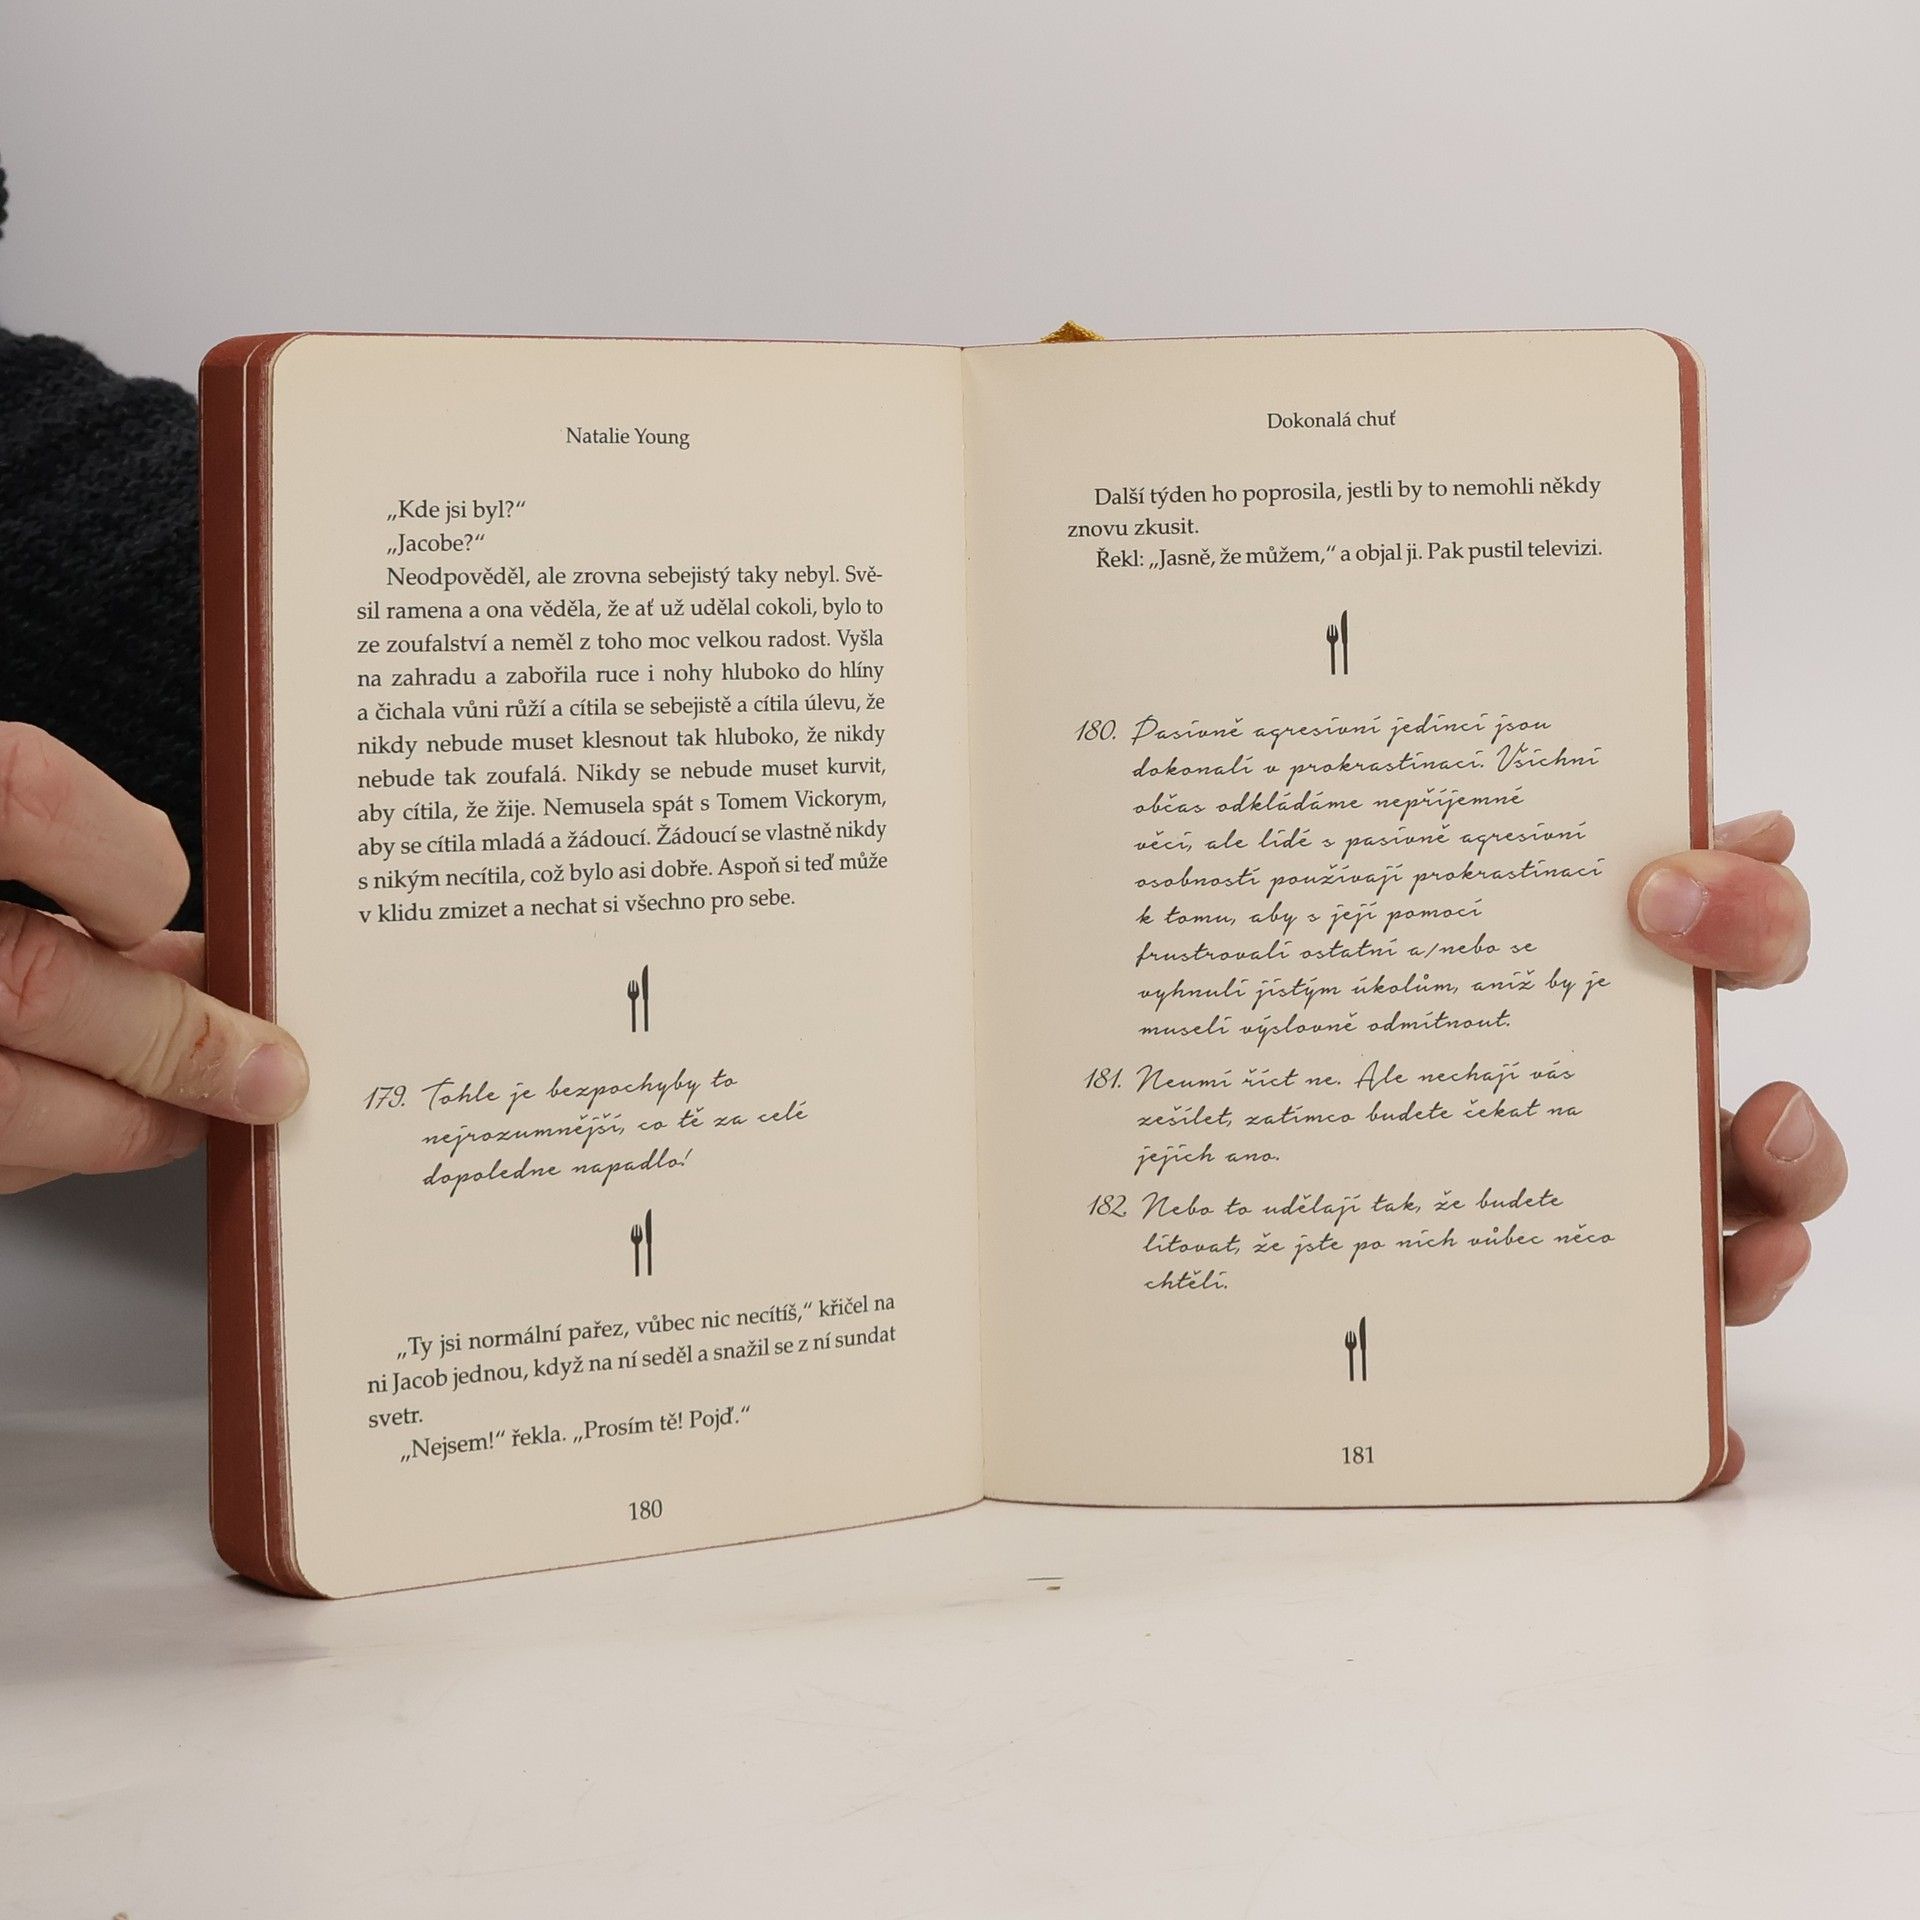 Natalie Young
„Kde jsi byl?“
„Jacobe?“
Neodpověděl, ale zrovna sebejistý taky nebyl. Svě-
sil ramena a ona věděla, že ať už udělal cokoli, bylo to
ze zoufalství a neměl z toho moc velkou radost. Vyšla
na zahradu a zabořila ruce i nohy hluboko do hlíny
a čichala vůni růží a cítila se sebejistě a cítila úlevu, že
nikdy nebude muset klesnout tak hluboko, že nikdy
nebude tak zoufalá. Nikdy se nebude muset kurvit,
aby cítila, že žije. Nemusela spát s Tomem Vickorym,
aby se cítila mladá a žádoucí. Žádoucí se vlastně nikdy
s nikým necítila, což bylo asi dobře. Aspoň si teď může
v klidu zmizet a nechat si všechno pro sebe.
179. Tohle je bezpochyby to
nejrozumnější, co tě za celé
dopoledne napadlo!
„Ty jsi normální pařez, vůbec nic necítíš,“ křičel na
ni Jacob jednou, když na ní seděl a snažil se z ní sundat
svetr.
„Nejsem!“ řekla. „Prosím tě! Pojď.“
180
Dokonalá chuť
Další týden ho poprosila, jestli by to nemohli někdy
znovu zkusit.
Řekl: „Jasně, že můžem,“ a objal ji. Pak pustil televizi.
180. Pasivně agresivní jedinci jsou
dokonalí v prokrastinaci. Všichni
občas odkládáme nepříjemné
věci, ale lidé s pasivně agresivní
osobností používají prokrastinaci
k tomu, aby s její pomocí
frustrovali ostatní a/nebo se
vyhnuli jistým úkolům, aniž by je
museli výslovně odmítnout.
181. Neumí říct ne. Ale nechají vás
zešílet, zatímco budete čekat na
jejich ano.
182. Nebo to udělají tak, že budete
litovat, že jste po nich vůbec něco
chtěli.
181